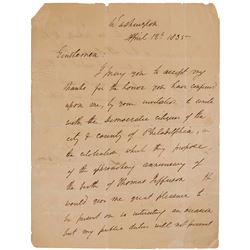 Washington
April 12th 1835
Gentlemen
I pray you to accept my
thanks for the honor you have confered
upon me, by your invitation to unite
with the democratic citizens of the
city & county of Philadelphia, in
the celebration which they propose
of the approaching anniversary of
the birth of Thomas Jefferson. It
would give me great pleasure to
be present on so interesting an occasion
but my public duties will not permit